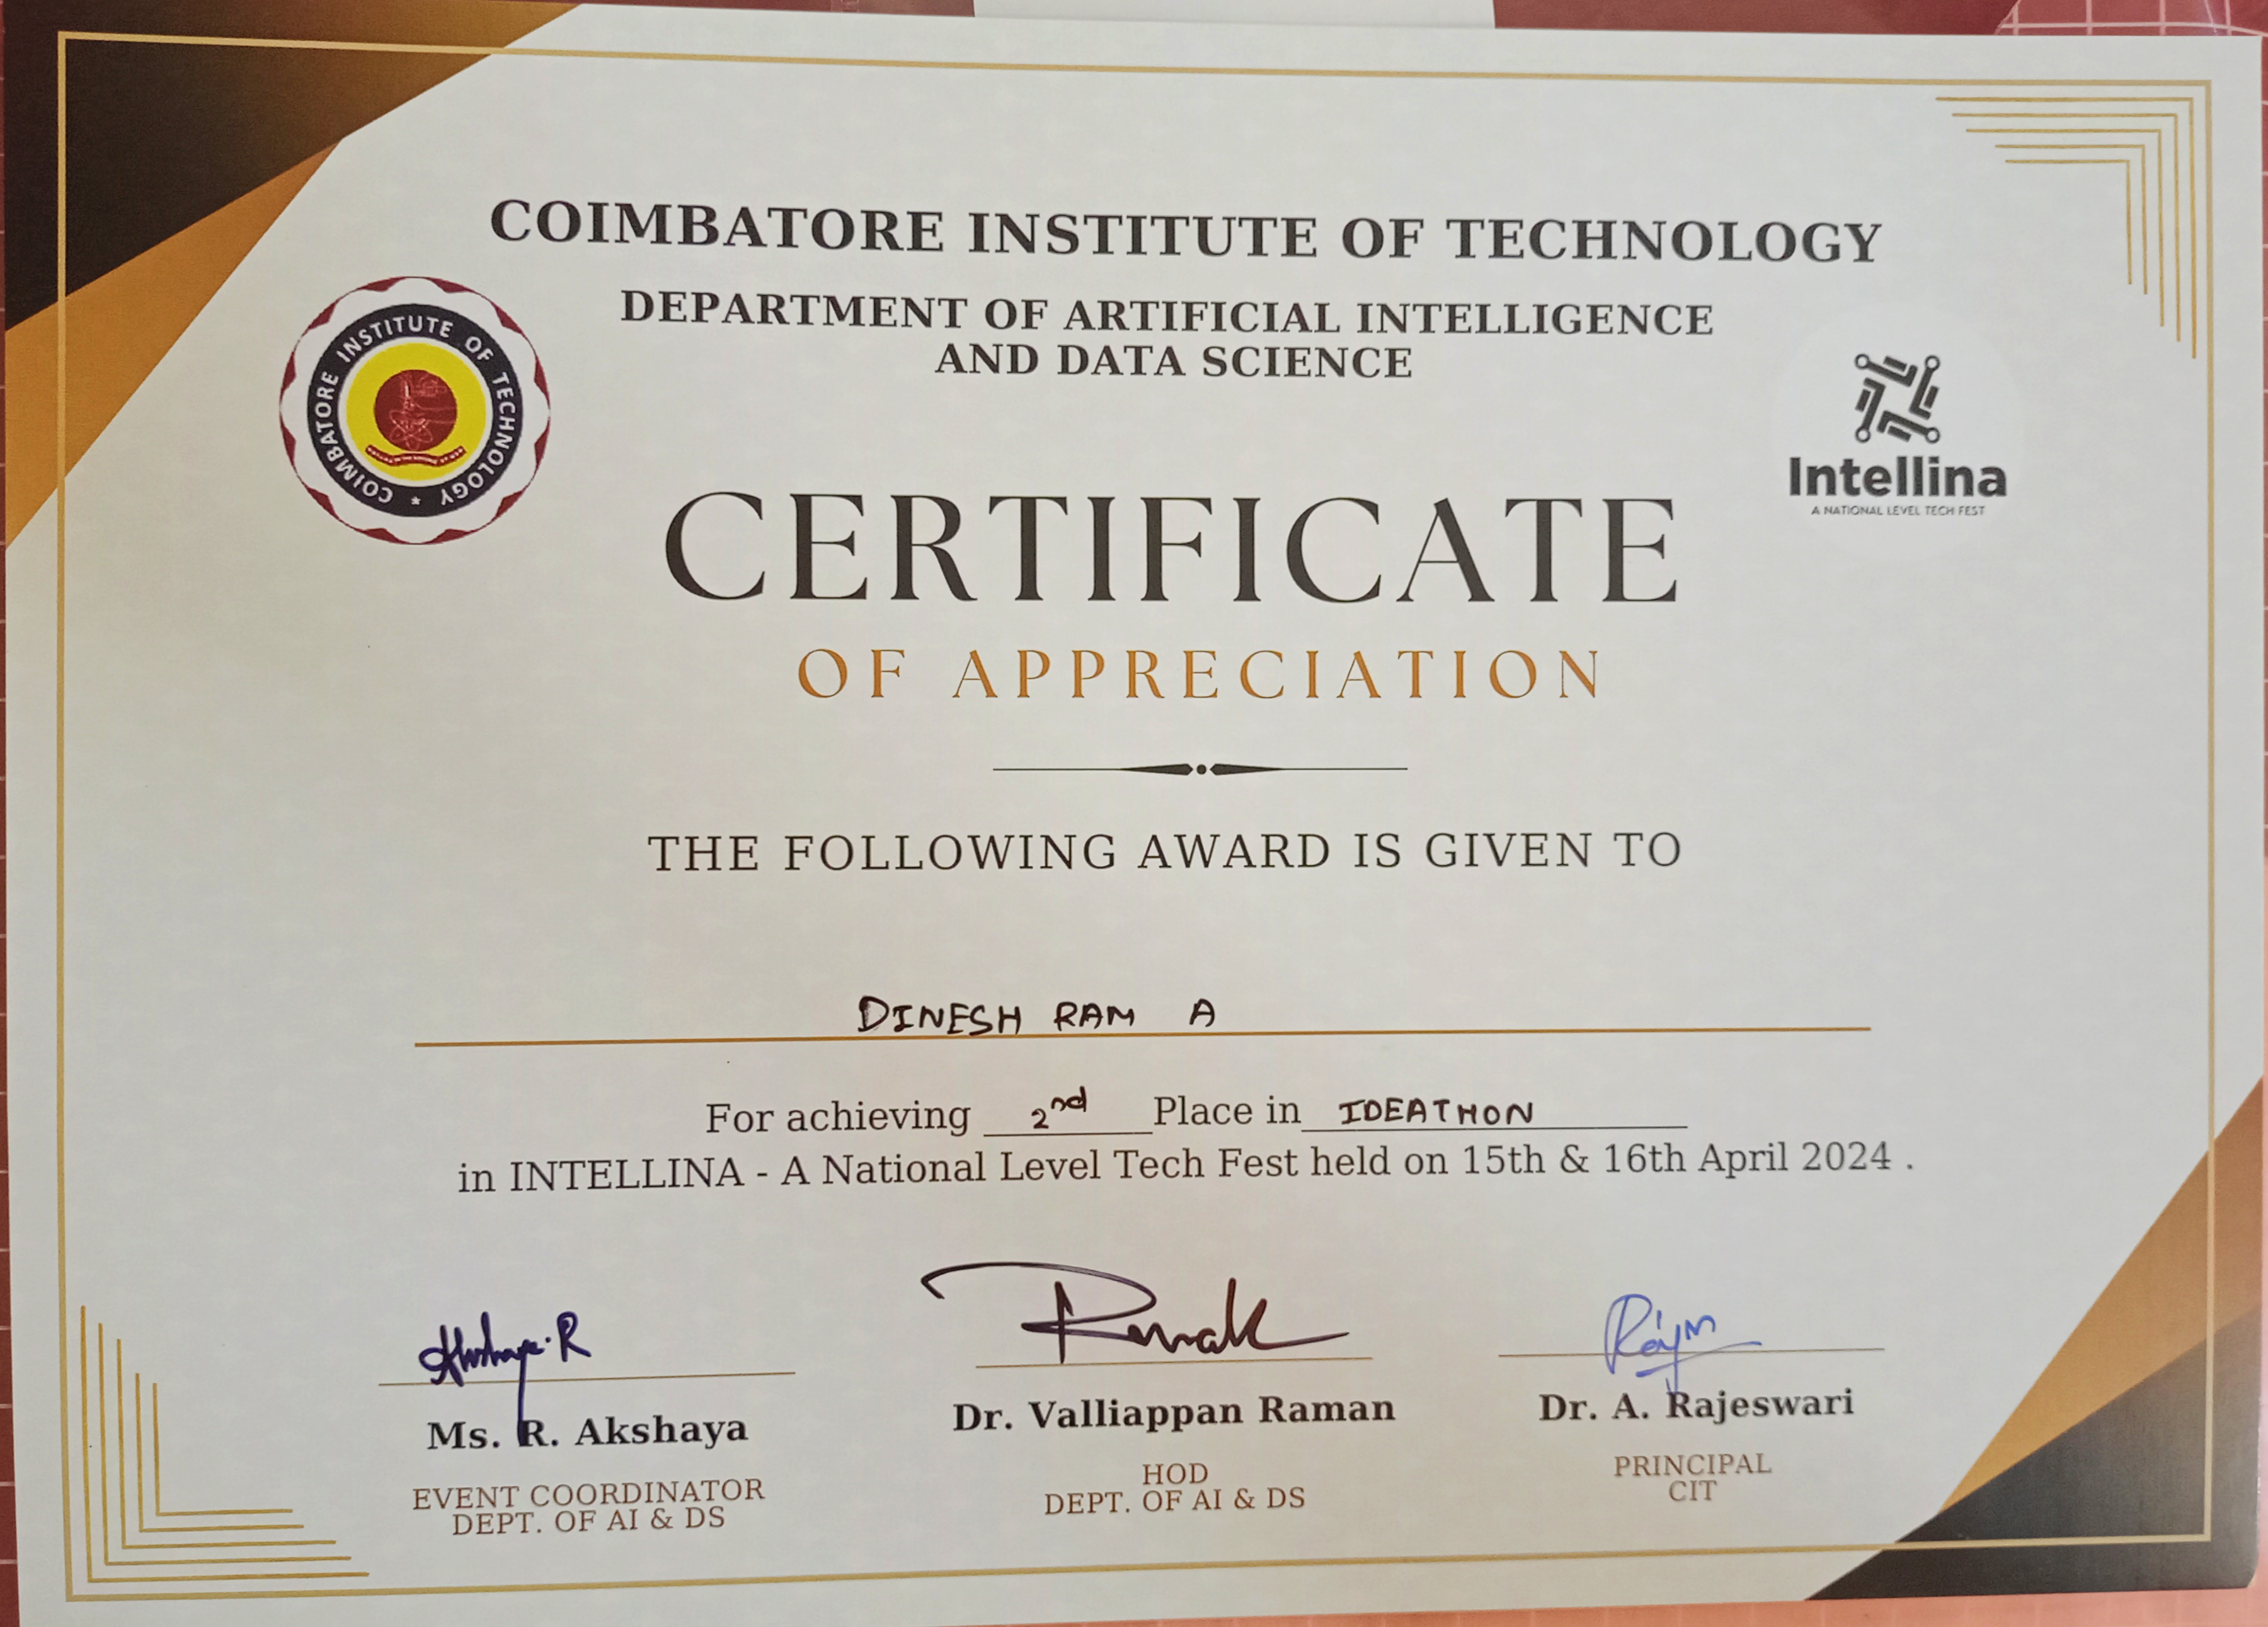 COIMBATORE INSTITUTE OF TECHNOLOGY
DEPARTMENT OF ARTIFICIAL INTELLIGENCE
AND DATA SCIENCE
COIMBATORE INSTITUTE OF TECHNOLOGY *
Intellina
A NATIONAL LEVEL TECH FEST
CERTIFICATE
OF APPRECIATION
THE FOLLOWING AWARD IS GIVEN TO
DINESH RAM A
For achieving 2nd Place in IDEATHON
in INTELLINA - A National Level Tech Fest held on 15th & 16th April 2024 .
Ms. R. Akshaya
EVENT COORDINATOR
DEPT. OF AI & DS
Dr. Valliappan Raman
HOD
DEPT. OF AI & DS
Dr. A. Rajeswari
PRINCIPAL
CIT